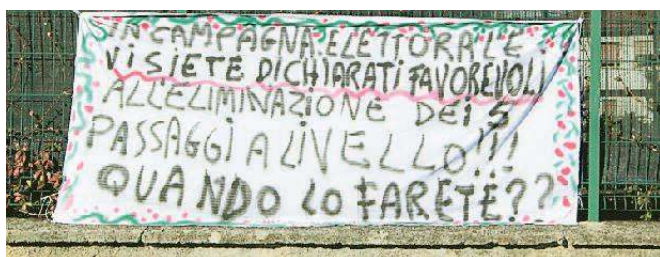 IN CAMPAGNA ELETTORALE
VI SIETE DICHIARATI FAVOREVOLI
ALL'ELIMINAZIONE DEI 5
PASSAGGI A LIVELLO!!!
QUANDO LO FARETE??